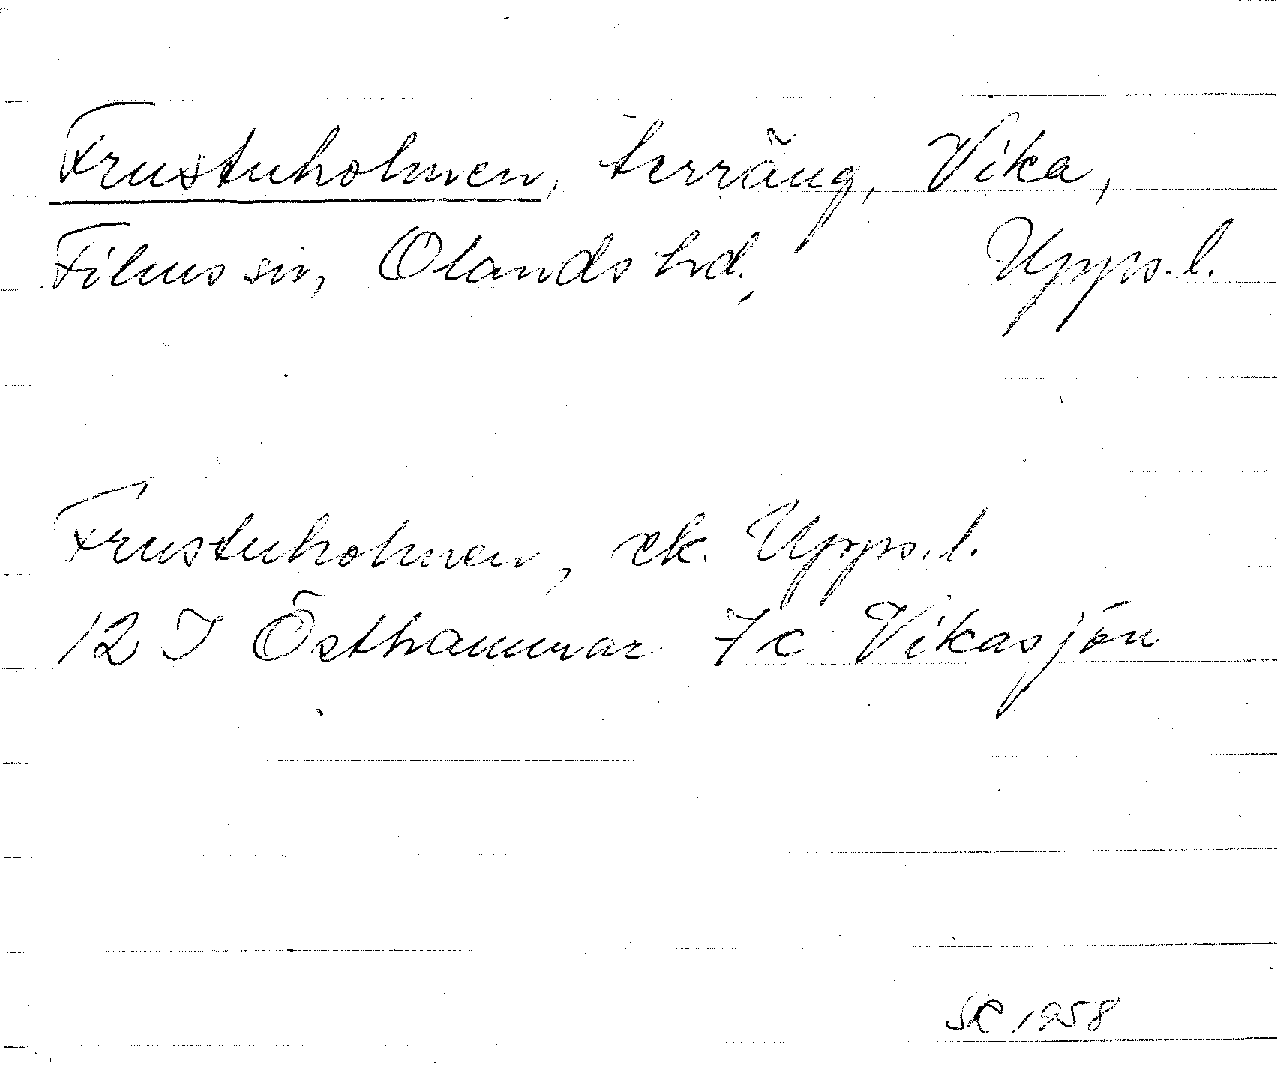 Frustuholmen, terräng, Vika,
Films sn, Olands hd., Upps.l.
Frustuholmen, ek. Upps.l.
12 I Östhammar 7 c Vikasjön
SR 1958